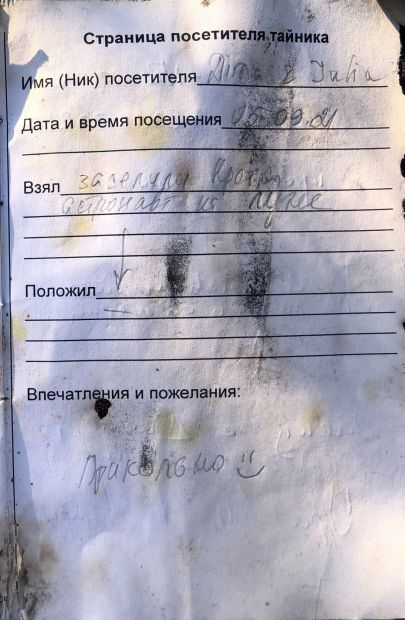 Страница посетителя тайника
Имя (Ник) посетителя Dima & Julia
Дата и время посещения 05.09.21
Взял заселили
астронавт на лунке
Положил
Впечатления и пожелания:
Прикольно